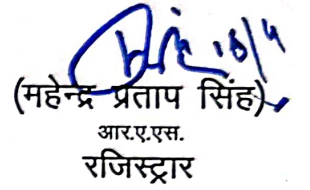 16/4
(महेन्द्र प्रताप सिंह)
आर.ए.एस.
रजिस्ट्रार